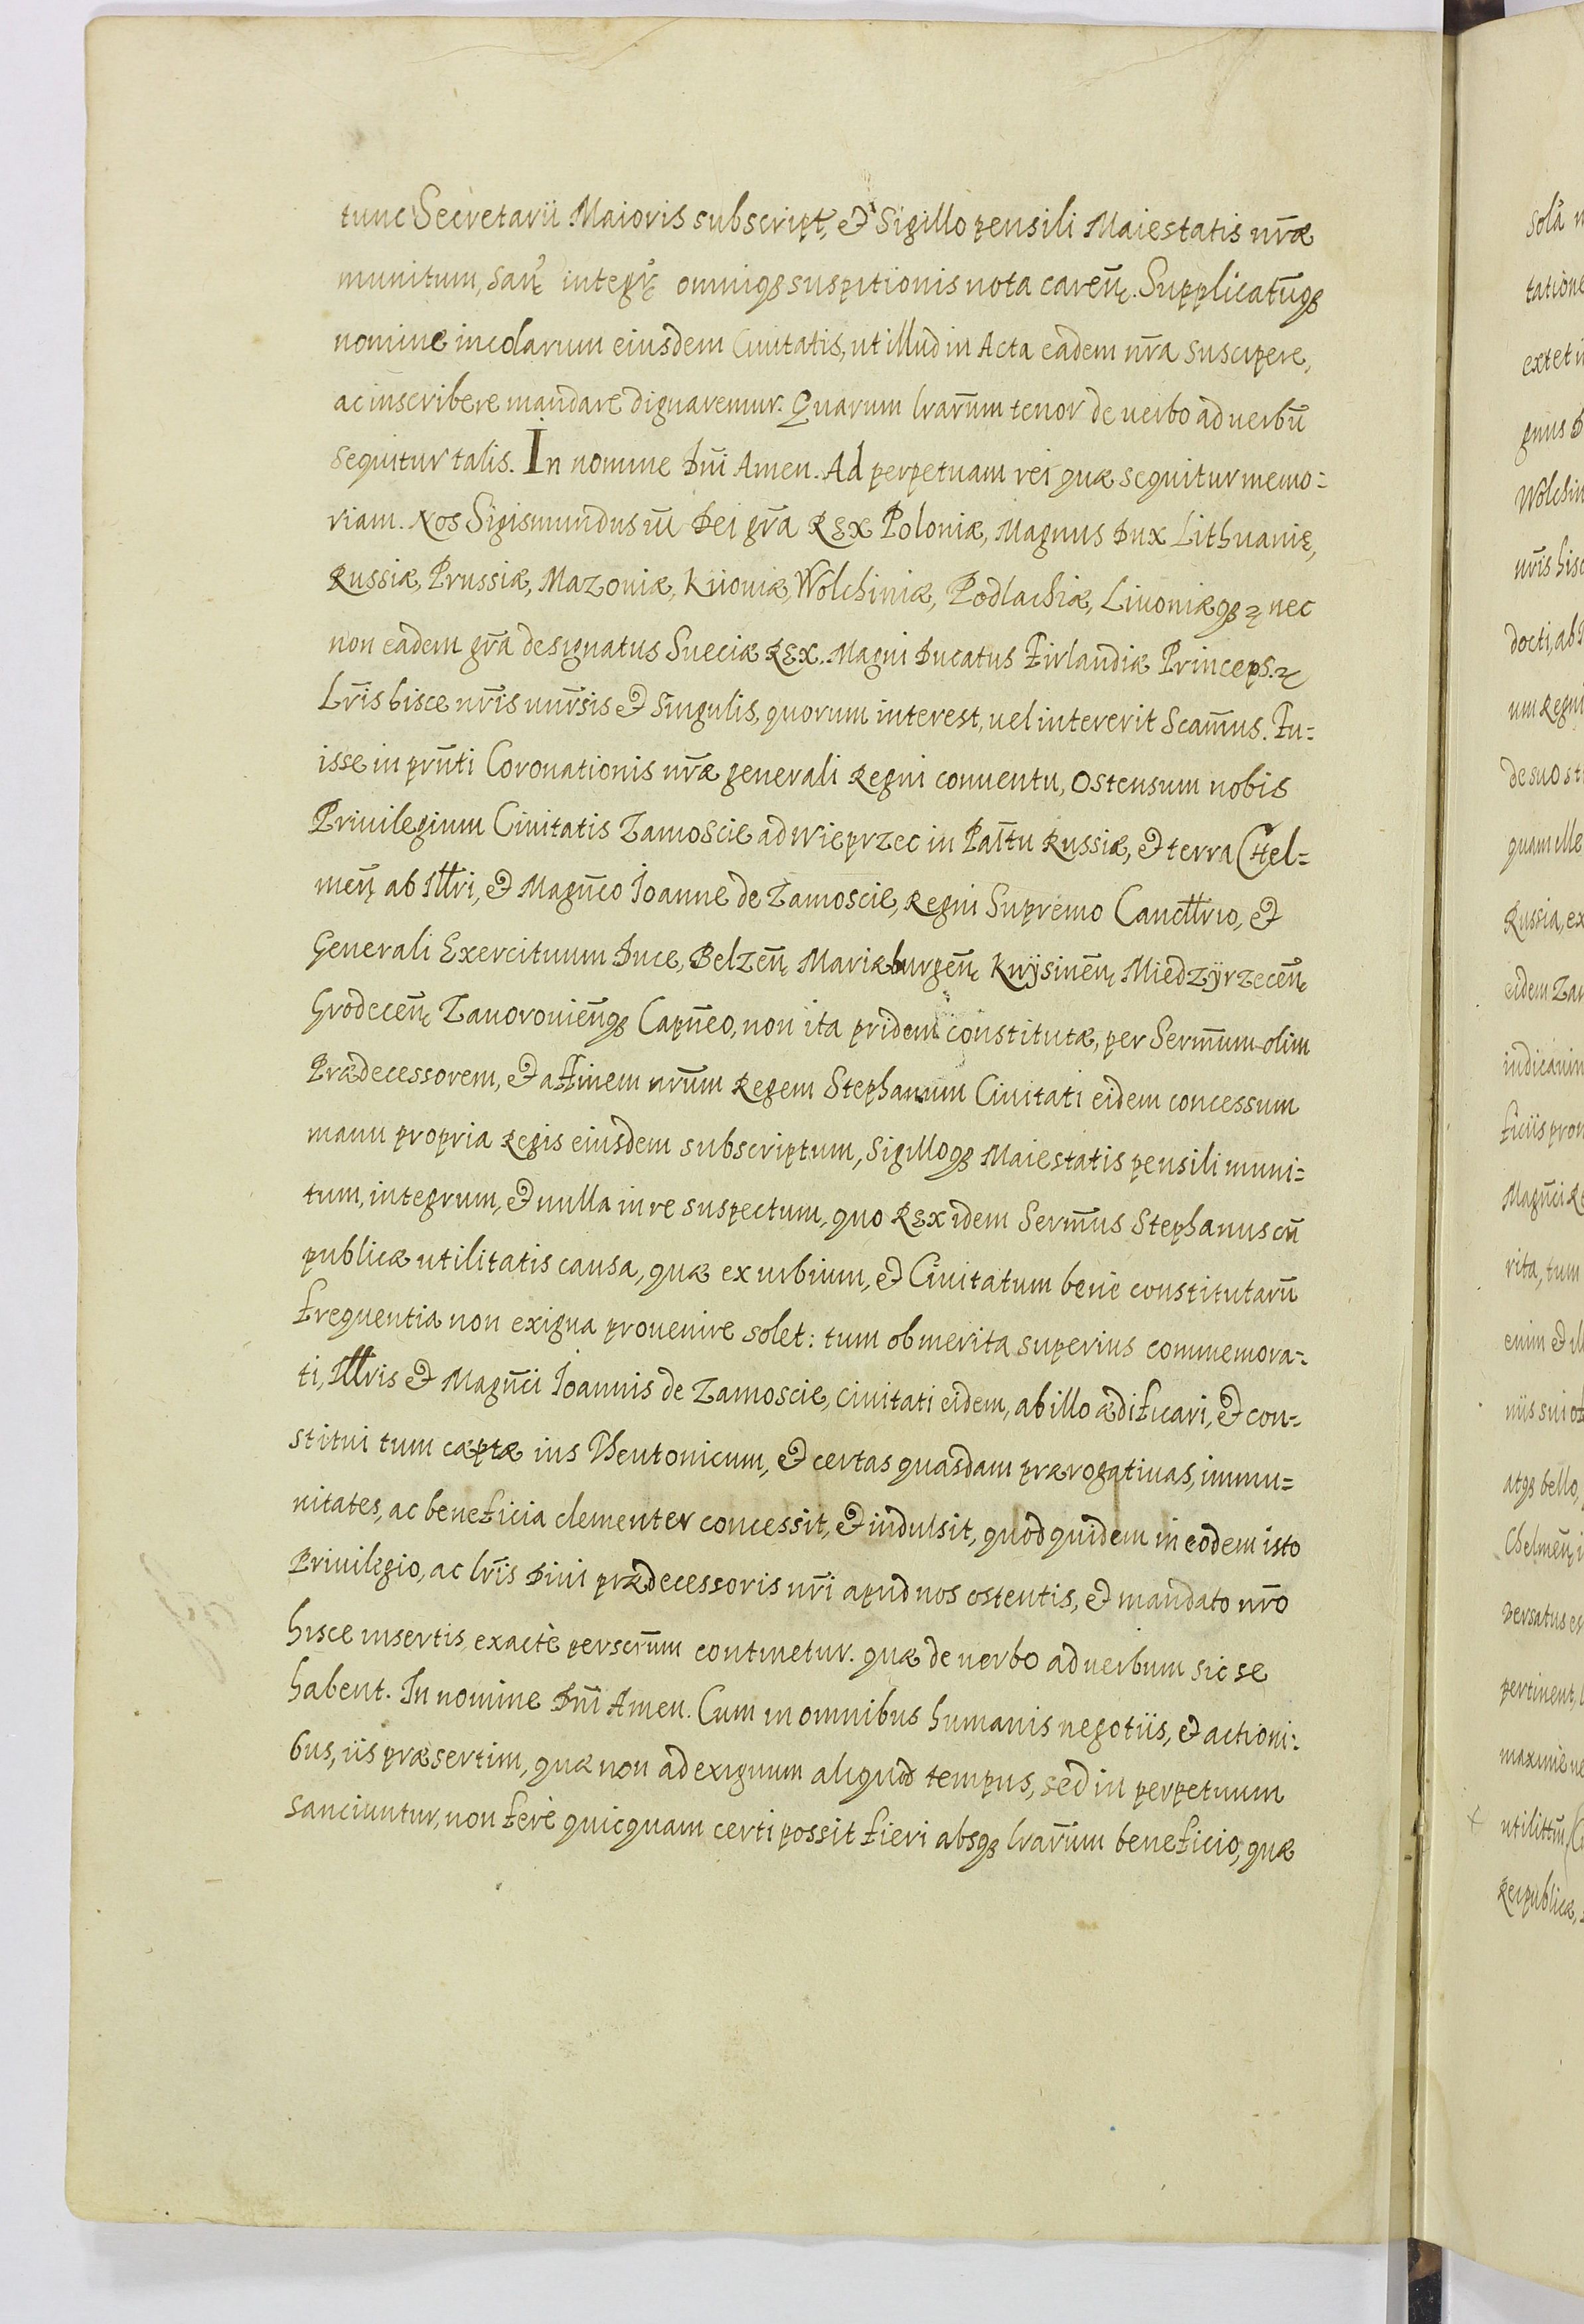 tunc Secretarii Maioris subscript, et Sigillo pensili Maiestatis nr̄æ
munitum, san̄ integr̄ omniq3 suspitionis nota caren̄. Supplicatūq3
nomine incolarum eiusdem Ciuitatis, ut illud in Acta eadem nr̄a suscipere,
ac inscribere mandare dignaremur. Quarum lrārum tenor de uerbo ad uerbū
sequitur talis. In nomine Dn̄i Amen. Ad perpetuam rei quæ sequitur memo=
riam. Nos Sigismundus III Dei grā Rex Poloniæ, Magnus Dux Lithuanię,
Russiæ, Prussiæ, Mazouiæ, Kiiouiæ, Wolchiniæ, Podlachiæ, Liuoniæq3 ꝛ nec
non eadem grā designatus Sueciæ Rex. Magni Ducatus Finlandiæ Princeps. ꝛ
Lrīs hisce nrīs unr̄sis et singulis, quorum interest, uel intererit Scam̄us. Fu=
isse in prn̄ti Coronationis nr̄æ generali Regni conuentu, ostensum nobis
Priuilegium Ciuitatis Zamoscie ad Wieprzec in Paltu Russiæ, et terra Chel=
men̄ ab Illri, et Magn̄co Ioanne de Zamoscie, Regni Supremo Cancllrio, et
Generali Exercituum Duce, Belzen̄ Mariæburgen̄ Knÿsinen̄ Miedzÿrzecen̄
Grodecen̄ Zanoronien̄q3 Capn̄eo, non ita pridem constitutæ, per Serm̄um olim
Prædecessorem, et affinem nr̄um Regem Stephanum Ciuitati eidem concessum
manu propria Regis eiusdem subscriptum, Sigilloq3 Maiestatis pensili muni=
tum, integrum, et nulla in re suspectum, quo Rex idem Serm̄us Stephanus cū
publicæ utilitatis causa, quæ ex urbium, et Ciuitatum bene constitutarū
frequentia non exigua prouenire solet: tum ob merita superius commemora=
ti, Illris et Magn̄ci Ioannis de Zamoscie, ciuitati eidem, ab illo ædificari, et con=
stitui tum cæptæ ius Theutonicum, et certas quasdam prærogatiuas, immu=
nitates, ac beneficia clementer concessit, et indulsit, quod quidem in eodem isto
Priuilegio, ac lrīs Diui prædecessoris nr̄i apud nos ostentis, et mandato nr̄o
hisce insertis exactè perscrip̄tum continetur. quæ de uerbo ad uerbum sic se
habent. In nomine Dn̄i Amen. Cum in omnibus humanis negotiis, et actioni=
bus, iis præsertim, quæ non ad exiguum aliquod tempus, sed in perpetuum
sanciuntur, non ferè quicquam certi possit fieri absq3 lrārum beneficio, quæ
solā
extet
Wolchin
nr̄is hisc
docti, ab
um Regni
de suo st
quam ille
Russia, ex
eidem Zam
ficiis prou
Magn̄ci Re
rita, tum
enim et
atq3 bello,
Chelmen̄
uersatus es
pertinent,
Reipublicæ,